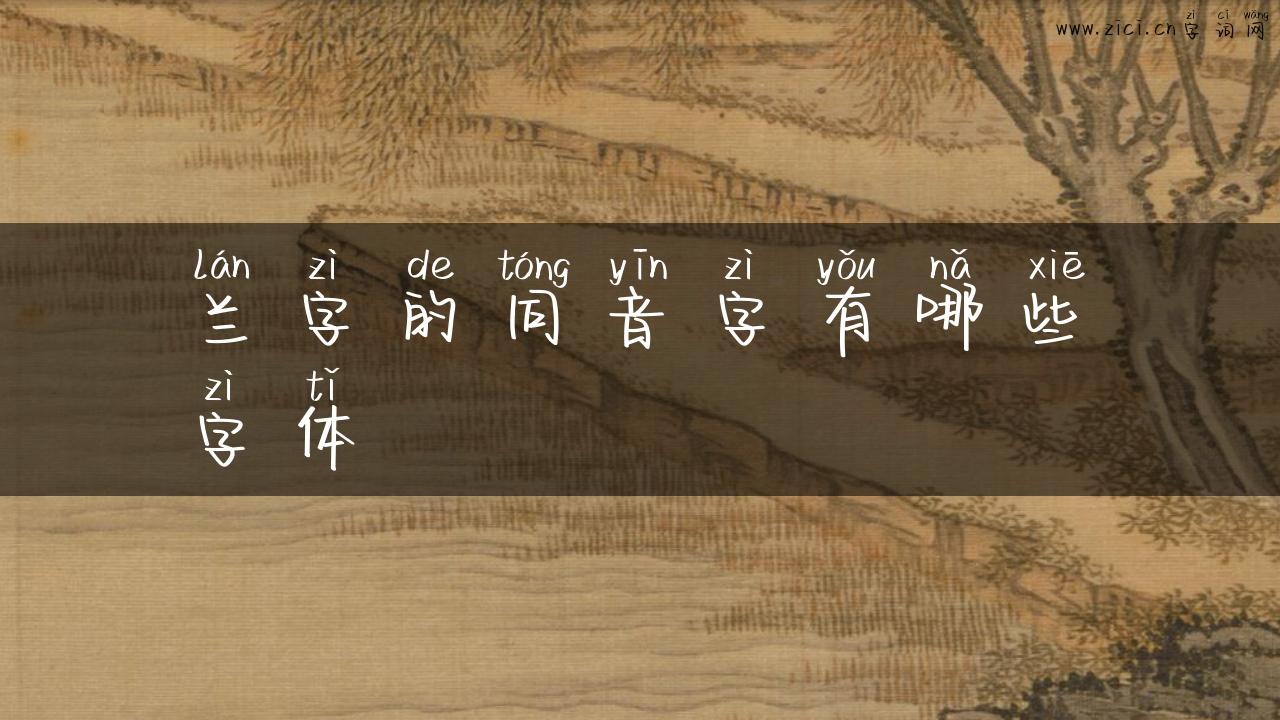 zì cí wǎng
www.zici.cn 字 词 网
lán zì de tóng yīn zì yǒu nǎ xiē
兰 字 的 同 音 字 有 哪 些
zì tǐ
字 体